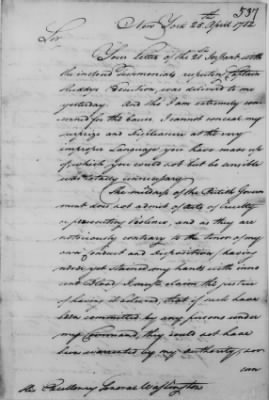 537
New York 25th April 1782
Sir
Your Letter of the 21st Instant with
the inclosed Testimonials respecting Captain
Huddy's Execution, was delivered to me
yesterday. And tho' I am extremely con-
cerned for the Cause I cannot conceal my
surprize and Displeasure at the very
improper Language you have made use
of which you could not but be sensible
was totally unnecessary.
The mildness of the British Govern
ment does not admit of Acts of Cruelty
or persecuting Violence, and as they are
notoriously contrary to the tenor of my
own Conduct and Disposition (having
never yet stained my hands with inno
cent blood) I must claim the justice
of having it believed, that if such have
been committed by any persons under
my Command, they could not have
been warranted by my authority, nor
can
His Excellency General Washington